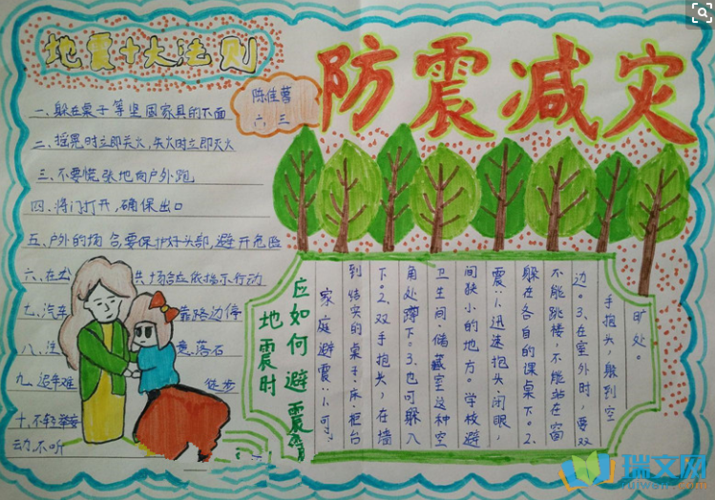 地震十大法则
防震减灾
陈佳
六.三
一、躲在桌子等坚固家具的下面
二、摇晃时立即关火,失火时立即灭火
三、不要慌张地向户外跑
四、将门打开,确保出口
五、户外的场合要保护好头部,避开危险
六、在 场合应依指示行动
七、汽车 靠路边停
八、注 落石
九、避难 徒步
十、不轻举妄
动,不听
地震时
应如何避震
家庭避震:1、可
到结实的桌子、床柜台
下。2、双手抱头,在墙
角处蹲下。3、也可躲入
卫生间、储藏室这种空
间狭小的地方。学校避
震:1、迅速抱头、闭眼,
躲在各自的课桌下。2、
不能跳楼,不能站在窗
边。3、在室外时,要双
手抱头,躲到空
旷处。
瑞文网
ruiwen.com